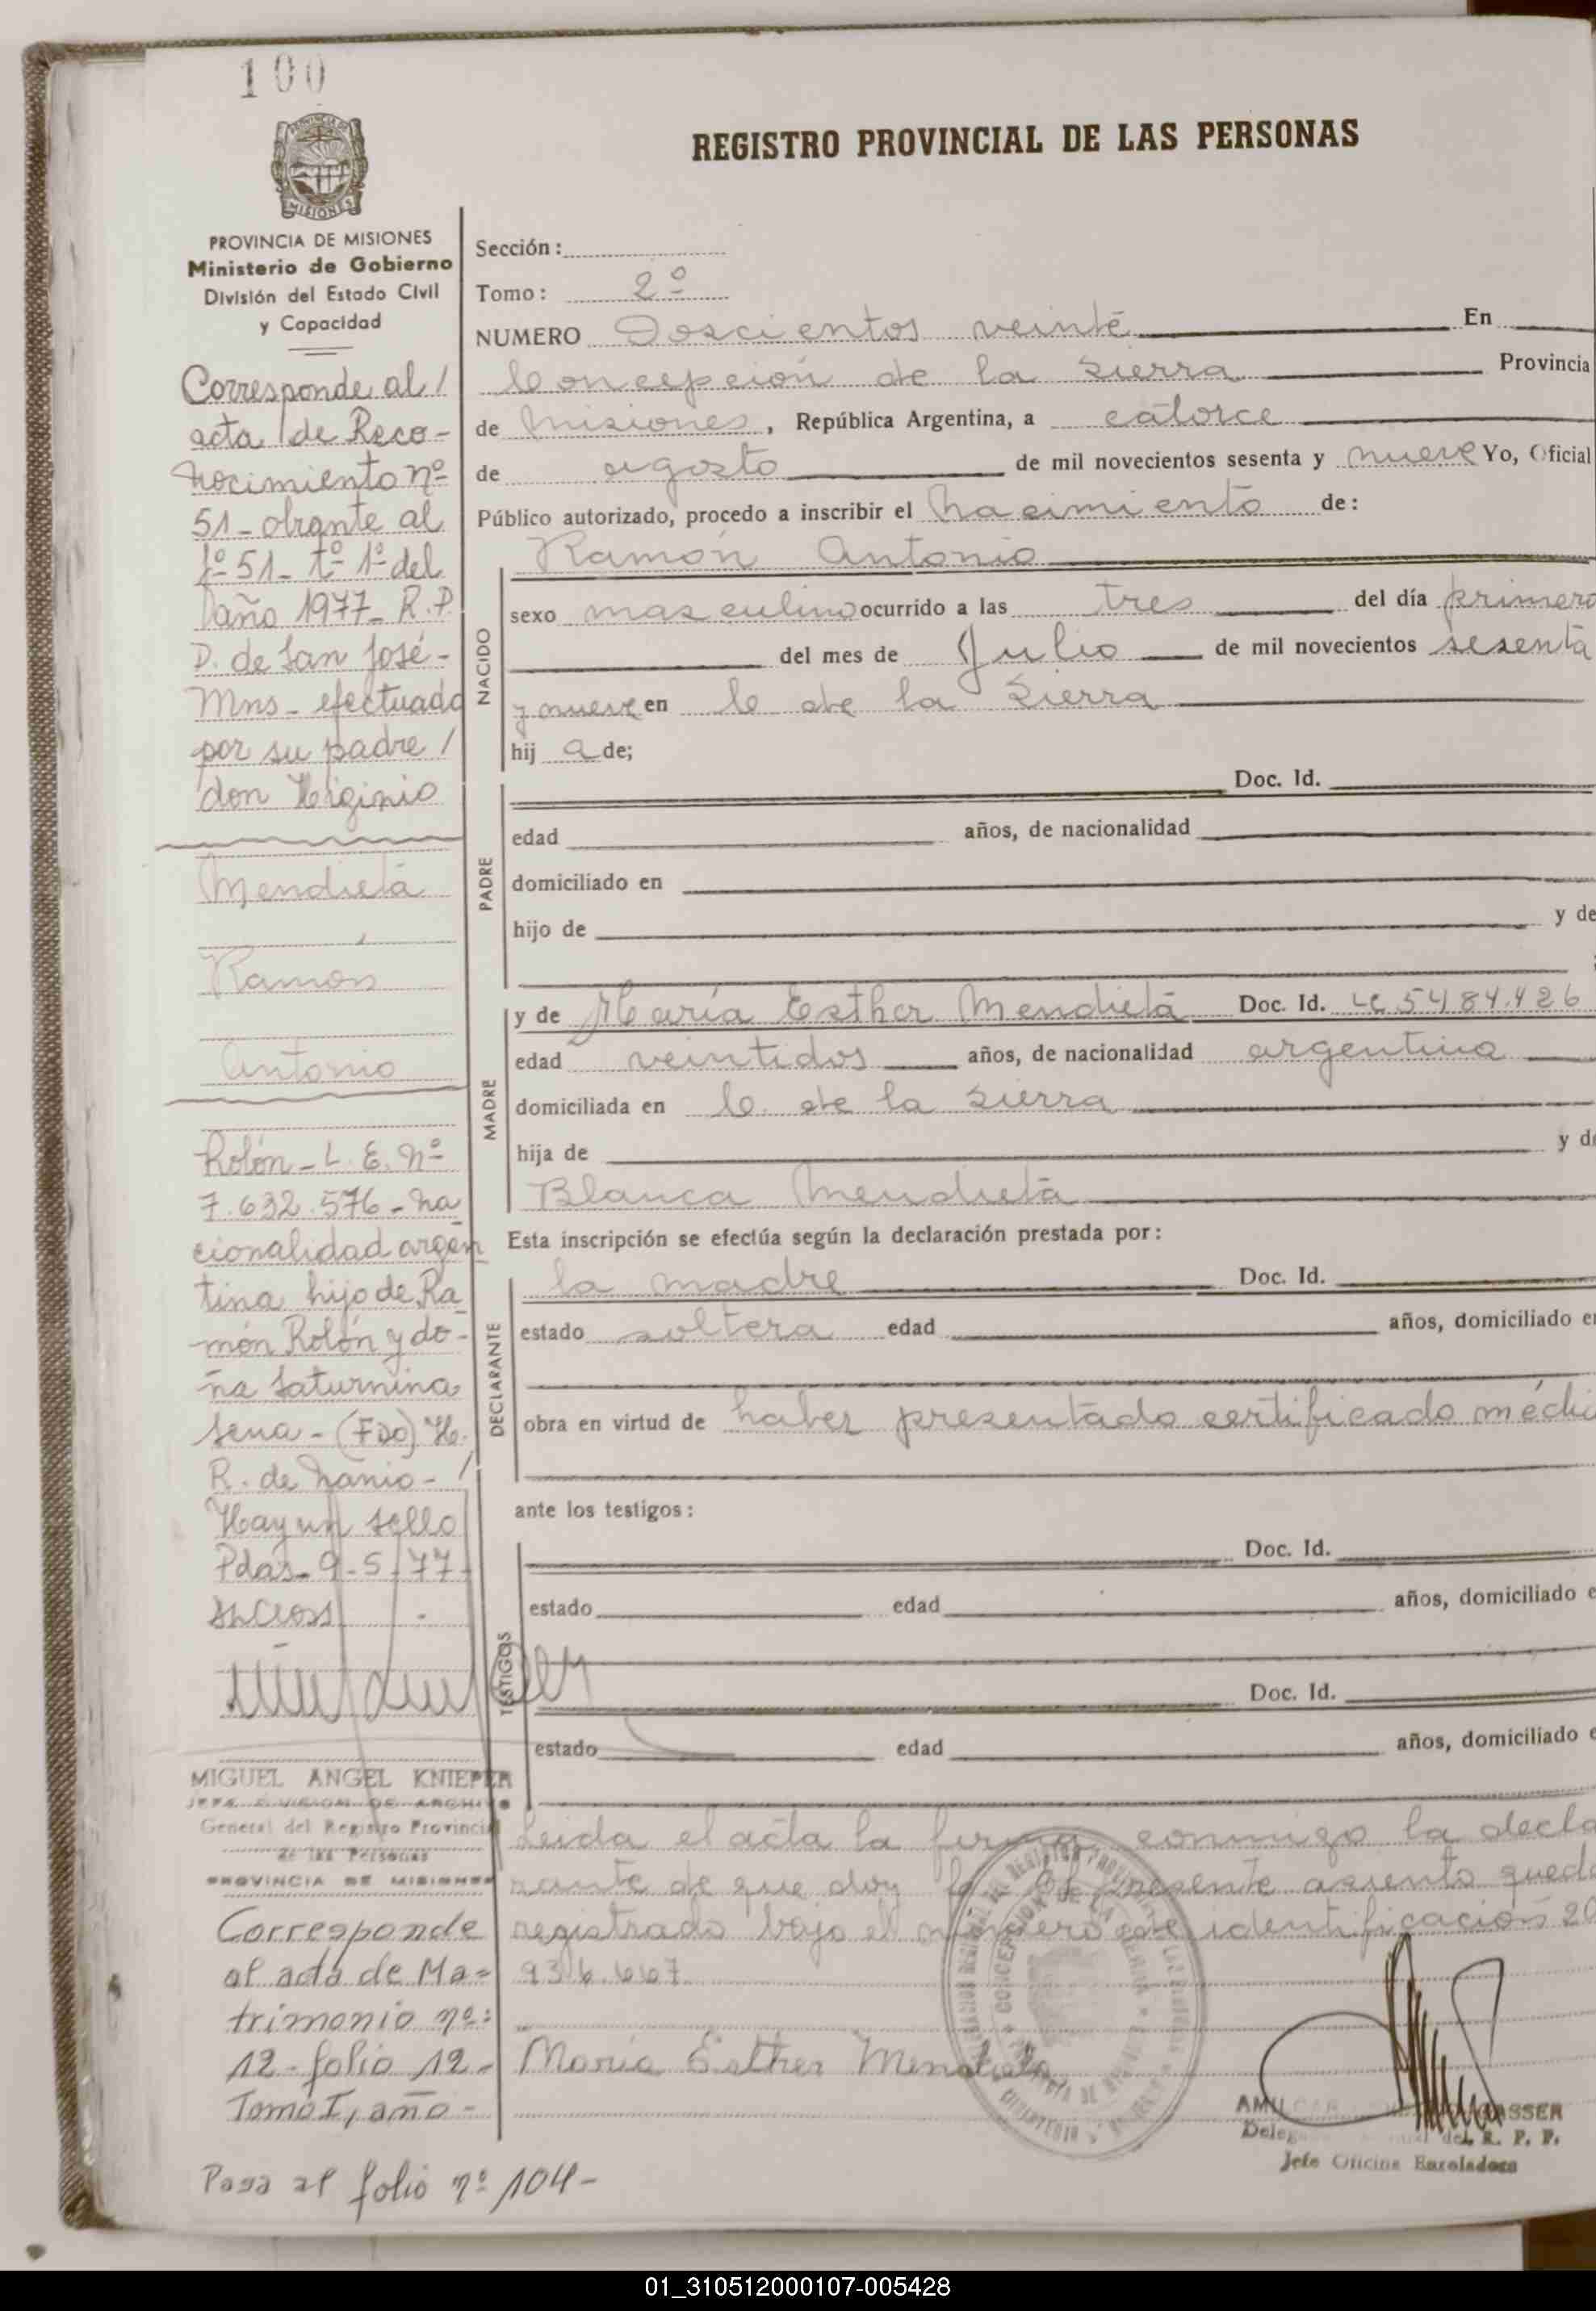 100
REGISTRO PROVINCIAL DE LAS PERSONAS
MISIONES
PROVINCIA DE MISIONES
Ministerio de Gobierno
División del Estado Civil
y Capacidad
Corresponde al /
acta de Reco-
nocimiento nº
51 - obrante al
fº 51 - tº 1º del
año 1977 - R.P.
P. de San José -
Mns - efectuado
por su padre /
don Higinio
Mendieta
Ramón
Antonio
Rolón - L. E. Nº
7.632.576 - na
cionalidad argen
tina hijo de Ra
món Rolón y do-
ña Saturnina
Sena - (FDO) H.
R. de Nanio - /
Hay un sello
Pdas - 9 - 5 - 77 -
MIGUEL ANGEL KNIEPER
JEFE DIVISION DE ARCHIVO
General del Registro Provincial
de las Personas
PROVINCIA DE MISIONES
Corresponde
al acta de Ma=
trimonio nº:
12 - folio 12 -
Tomo I, año -
Pasa al folio nº 104 -
Sección:
Tomo: 2º
NUMERO Doscientos veinte En
Concepción de la Sierra Provincia
de Misiones, República Argentina, a catorce
de agosto de mil novecientos sesenta y nueve Yo, Oficial
Público autorizado, procedo a inscribir el nacimiento de:
NACIDO
Ramón Antonio
sexo masculino ocurrido a las tres del día primero
del mes de Julio de mil novecientos sesenta
y nueve en C de la Sierra
hij o de;
PADRE
Doc. Id.
edad años, de nacionalidad
domiciliado en
hijo de y de
MADRE
y de María Esther Mendieta Doc. Id. LC 5484.426
edad veintidos años, de nacionalidad argentina
domiciliada en C. de la Sierra
hija de y de
Blanca Mendieta
Esta inscripción se efectúa según la declaración prestada por:
DECLARANTE
la madre Doc. Id.
estado soltera edad años, domiciliado en
obra en virtud de haber presentado certificado médic
ante los testigos:
TESTIGOS
Doc. Id.
estado edad años, domiciliado e
Doc. Id.
estado edad años, domiciliado e
Leida el acta la firma conmigo la decla
rante de que doy fe. El presente asiento queda
registrado bajo el número de identificación 20
936.667
María Esther Mendieta
CONCEPCION DE LA SIERRA
AMILCAR ASSER
del R. P. P.
Jefe Oficina Enroladora
01_310512000107-005428